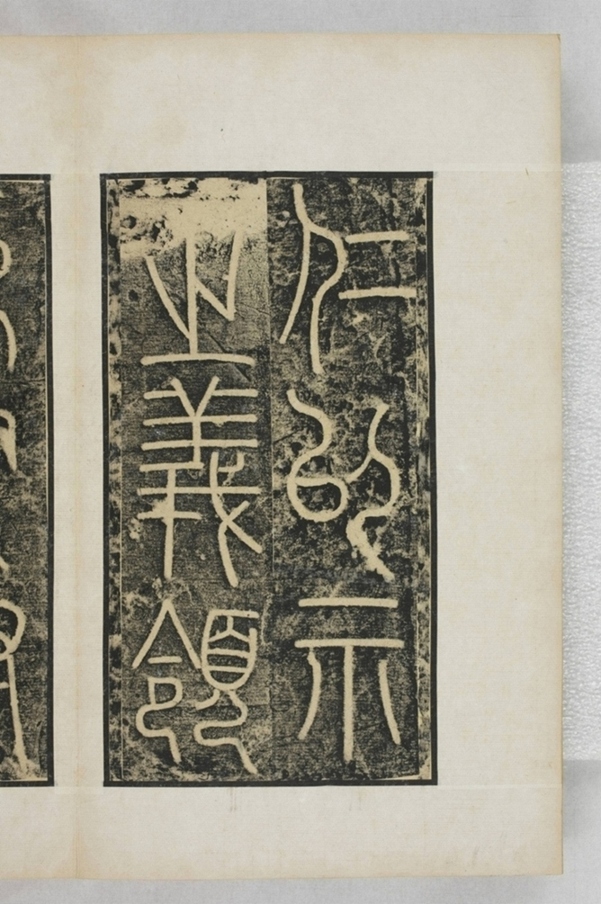 仁以示
之義領